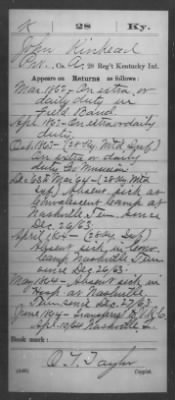 K | 28 | Ky.
John Kinhead
Pvt., Co. A, 28 Reg't Kentucky Inf.
Appears on Returns as follows:
Mar. 1862 - On extra or
daily duty in
Field Band.
Apl. 1862 - On extra or daily
duty.
Oct. 1863 - (28 Ky. Mtd. Inf.)
On extra or daily
duty Co.
Dec. 63 & Mar. 64 - (28 Ky. Mtd
Inf) Absent sick at
Convalescent Camp at
Nashville Tenn. since
Dec. 26/63.
April 1864 - (28 Ky. Inf)
Absent sick in Conv.
Camp Nashville Tenn
since Dec. 26/63.
May 1864 - Absent sick in
Hosp at Nashville
Tenn since Dec. 27/63
June 1864 - Transferred to V.R.C.
Apl. 1864 Nashville
Book mark:
O. T. Taylor
Copyist.